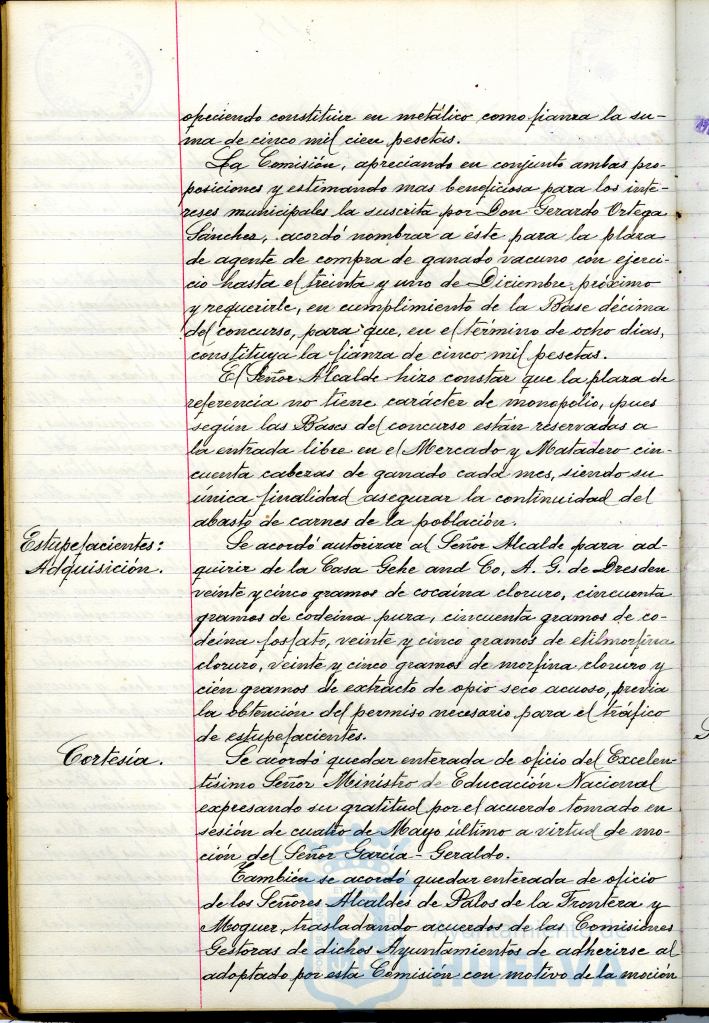 ofreciendo constituir en metálico como fianza la su-
ma de cinco mil cien pesetas.
La Comisión, apreciando en conjunto ambas pro-
posiciones y estimando mas beneficiosa para los inte-
reses municipales la suscrita por Don Gerardo Ortega
Sánchez, acordó nombrar a éste para la plaza
de agente de compra de ganado vacuno con ejerci-
cio hasta el treinta y uno de Diciembre próximo
y requerirle, en cumplimiento de la Base décima
del concurso, para que, en el término de ocho dias,
constituya la fianza de cinco mil pesetas.
El Señor Alcalde hizo constar que la plaza de
referencia no tiene carácter de monopolio, pues
según las Bases del concurso están reservadas a
la entrada libre en el Mercado y Matadero cin-
cuenta cabezas de ganado cada mes, siendo su
única finalidad asegurar la continuidad del
abasto de carnes de la población.
Estupefacientes:
Adquisición.
Se acordó autorizar al Señor Alcalde para ad-
quirir de la Casa Gehe and Co, A. G. de Dresden
veinte y cinco gramos de cocaina cloruro, cincuenta
gramos de codeina pura, cincuenta gramos de co-
deina fosfato, veinte y cinco gramos de etilmorfina
cloruro, veinte y cinco gramos de morfina cloruro y
cién gramos de extracto de opio seco acuoso, previa
la obtención del permiso necesario para el tráfico
de estupefacientes.
Cortesía.
Se acordó quedar enterada de oficio del Excelen-
tísimo Señor Ministro de Educación Nacional
expresando su gratitud por el acuerdo tomado en
sesión de cuatro de Mayo último a virtud de mo-
ción del Señor García-Geraldo.
También se acordó quedar enterada de oficio
de los Señores Alcaldes de Palos de la Frontera y
Moguer, trasladando acuerdos de las Comisiones
Gestoras de dichos Ayuntamientos de adherirse al
adoptado por esta Comisión con motivo de la moción
Ayuntamiento de
HUELVA